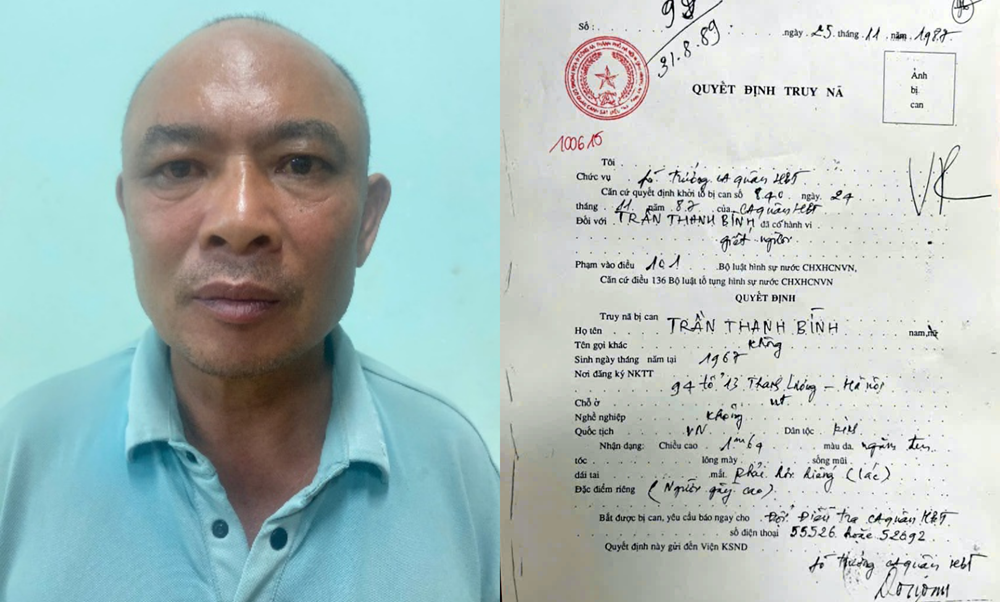 98
31.8.89
Số : ngày 25 tháng 11 năm 1987
Ảnh
bị
can
QUYẾT ĐỊNH TRUY NÃ
100615
VK
Tôi
Chức vụ fó trưởng CA quận HBT
Căn cứ quyết định khởi tố bị can số 840 ngày 24
tháng 11 năm 87 của CA quận HBT
Đối với TRẦN THANH BÌNH đã có hành vi
giết người
Phạm vào điều 101 Bộ luật hình sự nước CHXHCNVN,
Căn cứ điều 136 Bộ luật tố tụng hình sự nước CHXHCNVN
QUYẾT ĐỊNH
Truy nã bị can
Họ tên TRẦN THANH BÌNH nam, nữ
Tên gọi khác không
Sinh ngày tháng năm tại 1967
Nơi đăng ký NKTT
94 tổ 13 Thanh Lương - Hà Nội
Chỗ ở nt
Nghề nghiệp không
Quốc tịch VN Dân tộc kinh
Nhận dạng: Chiều cao 1m69 màu da ngăm đen
tóc lông mày sống mũi
dái tai mắt phải hơi hiếng (lác)
Đặc điểm riêng (Người gầy cao)
Bắt được bị can, yêu cầu báo ngay cho Đội Điều tra CA quận HBT
số điện thoại 55526 hoặc 52692
Quyết định này gửi đến Viện KSND
fó trưởng CA quận HBT